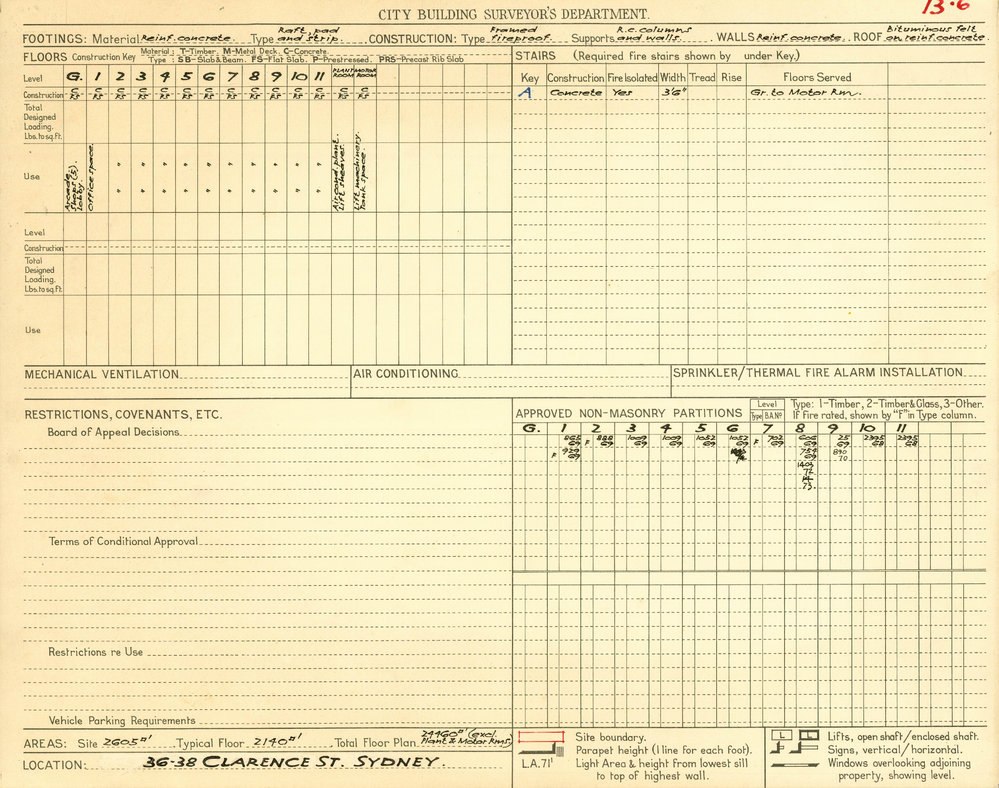 13.6
CITY BUILDING SURVEYOR'S DEPARTMENT.
FOOTINGS: Material Reinf. concrete. Type Raft, pad and strip. CONSTRUCTION: Type Framed fireproof. Supports R.C. columns and walls. WALLS Reinf. concrete. ROOF Bituminous felt on reinf. concrete.
FLOORS Construction Key Material: T-Timber. M-Metal Deck. C-Concrete.
Type: SB-Slab & Beam. FS-Flat Slab. P-Prestressed. PRS-Precast Rib Slab
Level G. 1 2 3 4 5 6 7 8 9 10 11 PLANT ROOM MOTOR ROOM
Construction C FS C FS C FS C FS C FS C FS C FS C FS C FS C FS C FS C FS C FS C FS
Total Designed Loading. Lbs. to sq.ft.
Use Arcade, shops (3), lobby. Office space. " " " " " " " " " " Air cond. plant. Lift sheaves. Lift machinery. Tank space.
" " " " " " " " " "
Level
Construction
Total Designed Loading. Lbs. to sq.ft.
Use
STAIRS (Required fire stairs shown by under Key.)
Key Construction Fire Isolated Width Tread Rise Floors Served
A Concrete Yes 3'6" Gr. to Motor Rm.
MECHANICAL VENTILATION AIR CONDITIONING SPRINKLER/THERMAL FIRE ALARM INSTALLATION
RESTRICTIONS, COVENANTS, ETC.
Board of Appeal Decisions
Terms of Conditional Approval
Restrictions re Use
Vehicle Parking Requirements
APPROVED NON-MASONRY PARTITIONS Level Type B.A.Nº Type: 1-Timber, 2-Timber & Glass, 3-Other.
If Fire rated, shown by "F" in Type column.
G. 1 2 3 4 5 6 7 8 9 10 11
865 69 F 888 69 1009 69 1009 69 1052 69 1052 69 F 702 69 606 69 25 69 2395 68 2395 68
F 929 69 754 69 890 70
1403 72
14 73.
AREAS: Site 2605 □' Typical Floor 2140 □' Total Floor Plan 24460 □' (excl. Plant & Motor Rms)
LOCATION: 36-38 CLARENCE ST. SYDNEY.
Site boundary.
Parapet height (1 line for each foot).
L.A.71' Light Area & height from lowest sill
to top of highest wall.
L Lifts, open shaft/enclosed shaft.
Signs, vertical/horizontal.
Windows overlooking adjoining
property, showing level.